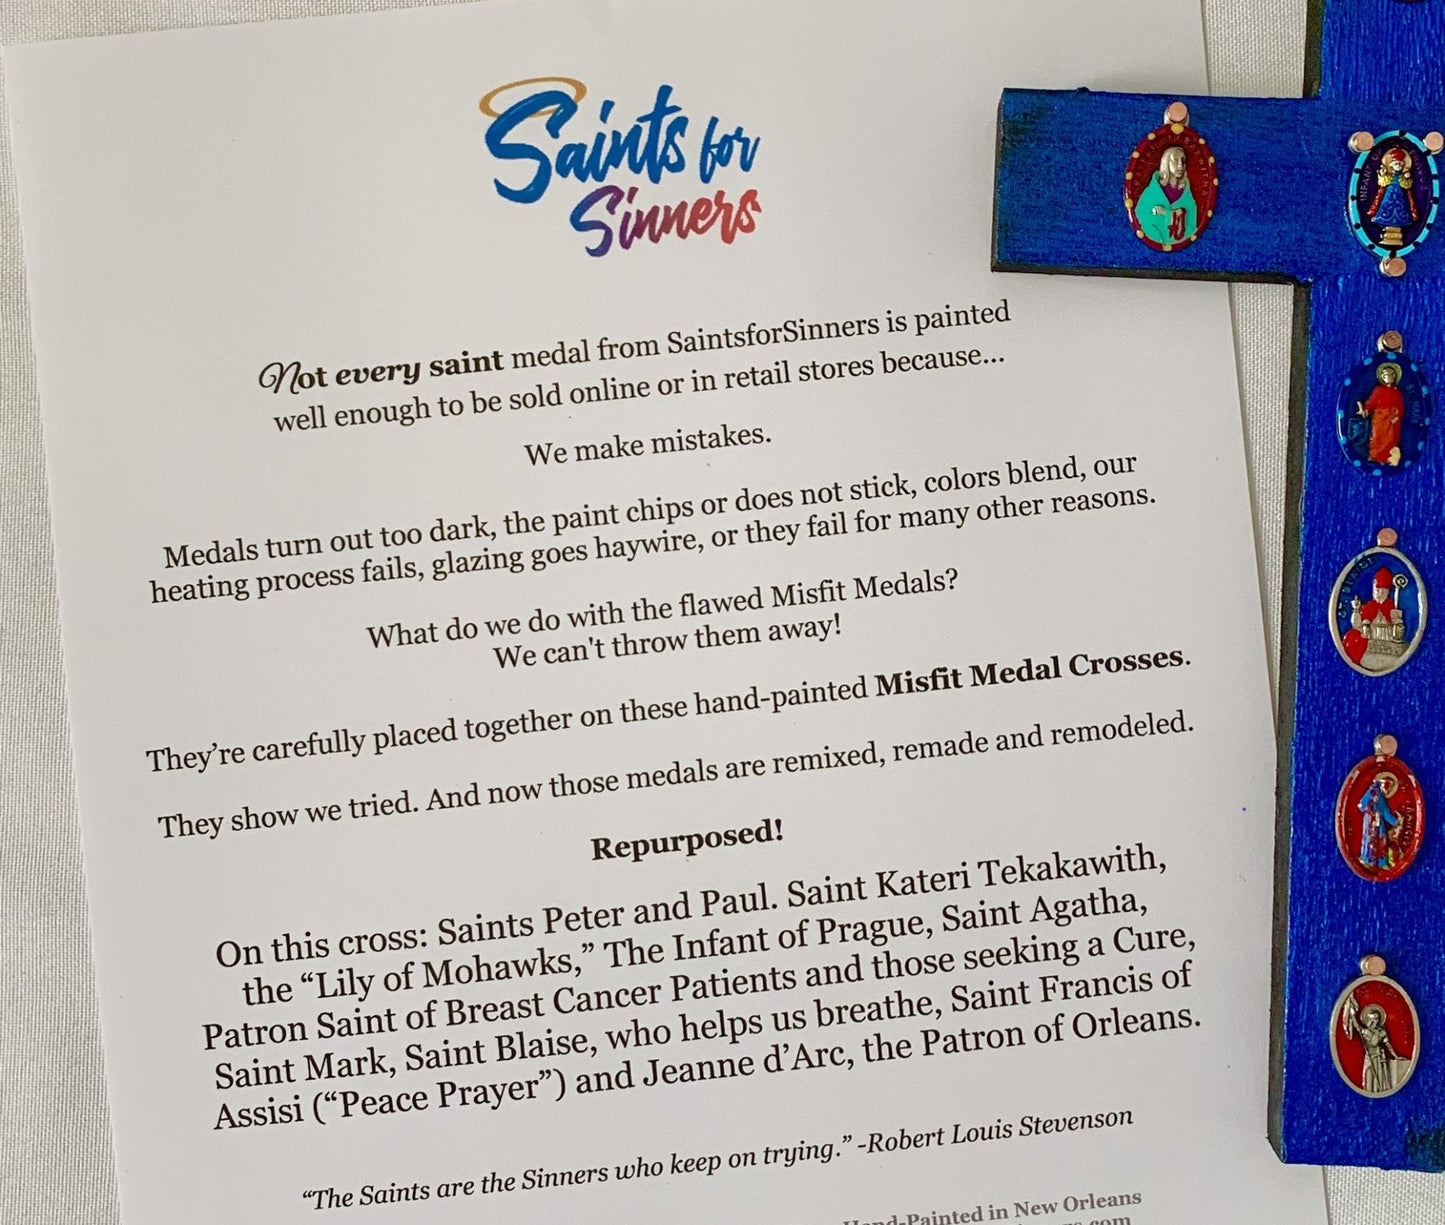 Saints for
Sinners
Not every saint medal from SaintsforSinners is painted
well enough to be sold online or in retail stores because...
We make mistakes.
Medals turn out too dark, the paint chips or does not stick, colors blend, our
heating process fails, glazing goes haywire, or they fail for many other reasons.
What do we do with the flawed Misfit Medals?
We can't throw them away!
They’re carefully placed together on these hand-painted Misfit Medal Crosses.
They show we tried. And now those medals are remixed, remade and remodeled.
Repurposed!
On this cross: Saints Peter and Paul. Saint Kateri Tekakawith,
the “Lily of Mohawks,” The Infant of Prague, Saint Agatha,
Patron Saint of Breast Cancer Patients and those seeking a Cure,
Saint Mark, Saint Blaise, who helps us breathe, Saint Francis of
Assisi (“Peace Prayer”) and Jeanne d’Arc, the Patron of Orleans.
“The Saints are the Sinners who keep on trying.” -Robert Louis Stevenson
Hand-Painted in New Orleans
ST. BLAISE